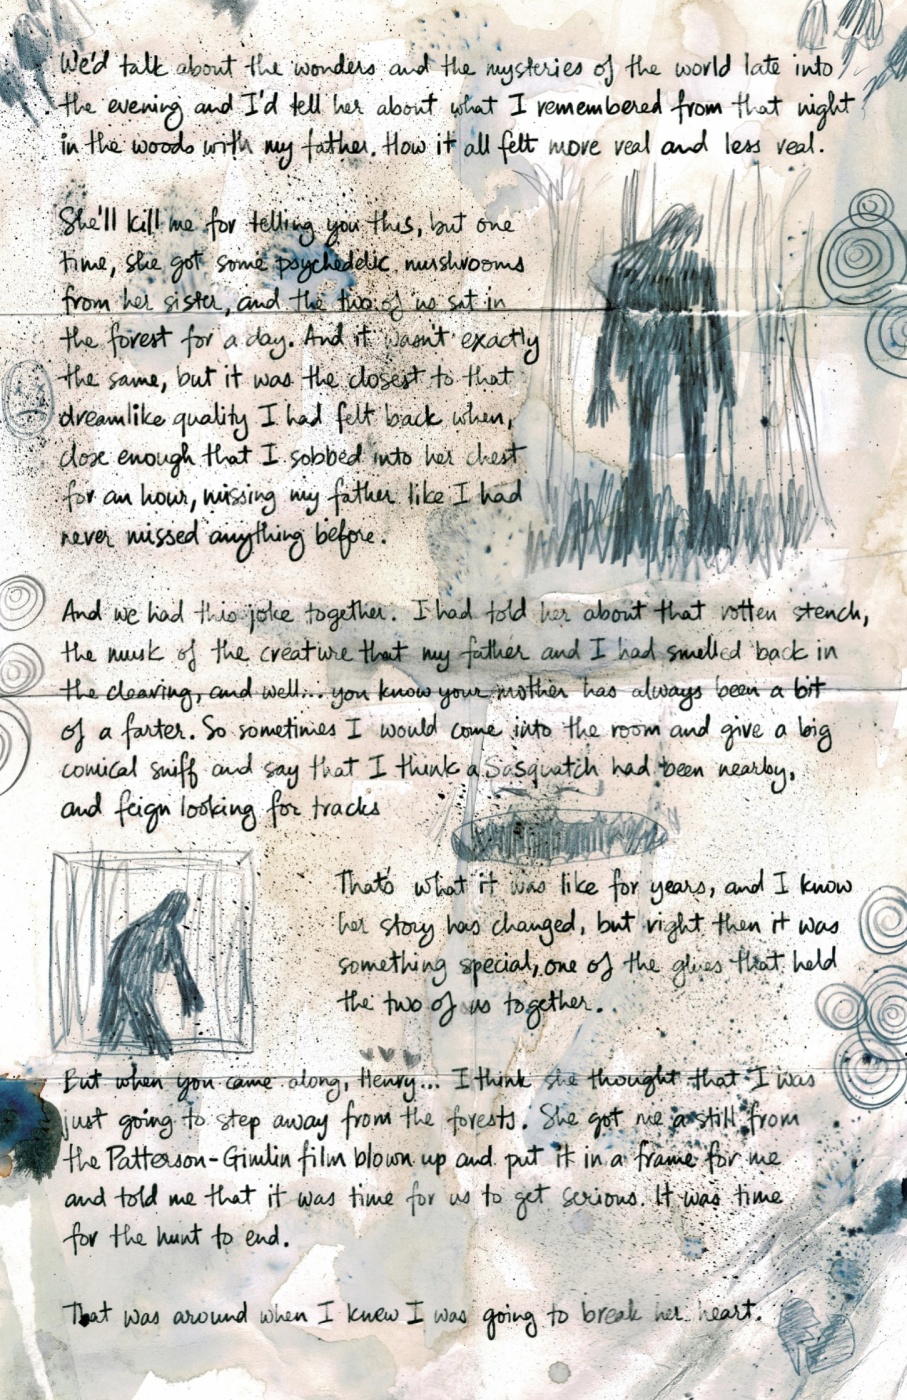 We'd talk about the wonders and the mysteries of the world late into
the evening and I'd tell her about what I remembered from that night
in the woods with my father. How it all felt more real and less real.
She'll kill me for telling you this, but one
time, she got some psychedelic mushrooms
from her sister, and the two of us sat in
the forest for a day. And it wasn't exactly
the same, but it was the closest to that
dreamlike quality I had felt back when,
close enough that I sobbed into her chest
for an hour, missing my father like I had
never missed anything before.
And we had this joke together. I had told her about that rotten stench,
the musk of the creature that my father and I had smelled back in
the clearing, and well... you know your mother has always been a bit
of a farter. So sometimes I would come into the room and give a big
comical sniff and say that I think a Sasquatch had been nearby,
and feign looking for tracks
That's what it was like for years, and I know
her story has changed, but right then it was
something special, one of the glues that held
the two of us together.
But when you came along, Henry... I think she thought that I was
just going to step away from the forests. She got me a still from
the Patterson-Gimlin film blown up and put it in a frame for me
and told me that it was time for us to get serious. It was time
for the hunt to end.
That was around when I knew I was going to break her heart.